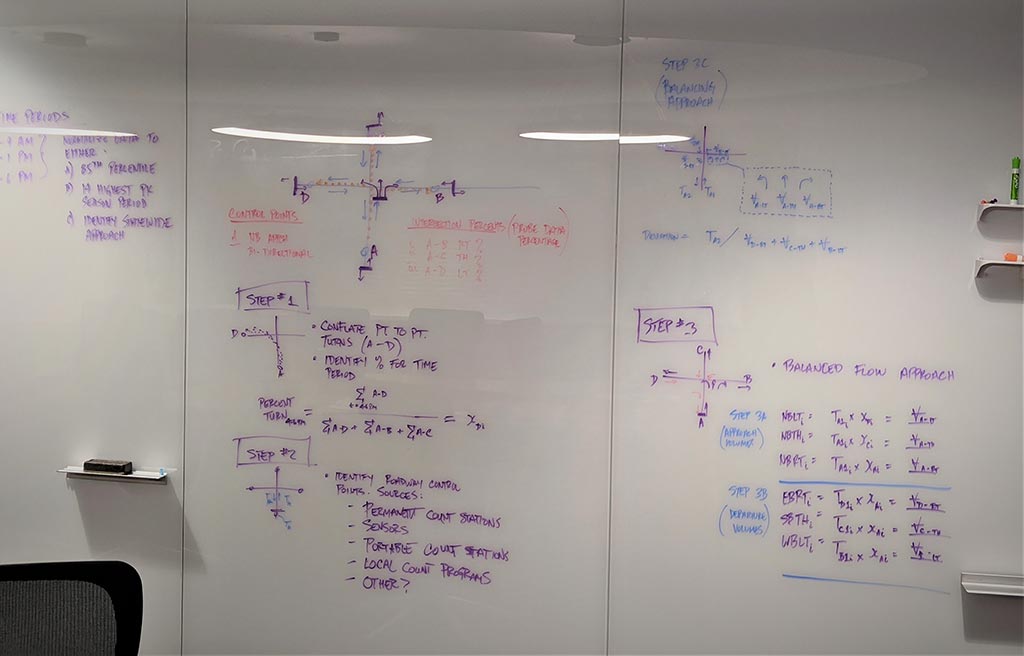 TIME PERIODS
- 9 AM
- 1 PM
- 6 PM
NORMALIZE DATA TO
EITHER:
A) 85TH PERCENTILE
B) 14 HIGHEST PK
SEASON PERIOD
C) IDENTIFY STATEWIDE
APPROACH
D
B
A
CONTROL POINTS
1 NB APPR
BI-DIRECTIONAL
INTERSECTION PERCENTS (PROBE DATA
PERCENTAGE)
i. A-B RT ?
ii. A-C TH ?
iii. A-D LT ?
STEP #1
D
A
• CONFLATE PT TO PT.
TURNS (A-D)
• IDENTIFY % FOR TIME
PERIOD
PERCENT
TURN = Σ A-D / Σ A-D + Σ A-B + Σ A-C = X Di
STEP #2
• IDENTIFY ROADWAY CONTROL
POINTS. SOURCES:
- PERMANENT COUNT STATIONS
- SENSORS
- PORTABLE COUNT STATIONS
- LOCAL COUNT PROGRAMS
- OTHER?
STEP 3C
(BALANCING
APPROACH)
TA2 TA1
VA-LT VA-TH VA-RT
DEVIATION = TA2 / VD-RT + VC-TH + VB-LT
STEP #3
C
D
B
A
• BALANCED FLOW APPROACH
STEP 3A
(APPROACH
VOLUMES)
NBLTi = TA1i x XDi = VA-LT
NBTHi = TA1i x XCi = VA-TH
NBRTi = TA1i x XBi = VA-RT
STEP 3B
(DEPARTURE
VOLUMES)
EBRTi = TD1i x XAi = VD-RT
SBTHi = TC1i x XAi = VC-TH
WBLTi = TB1i x XAi = VB-LT